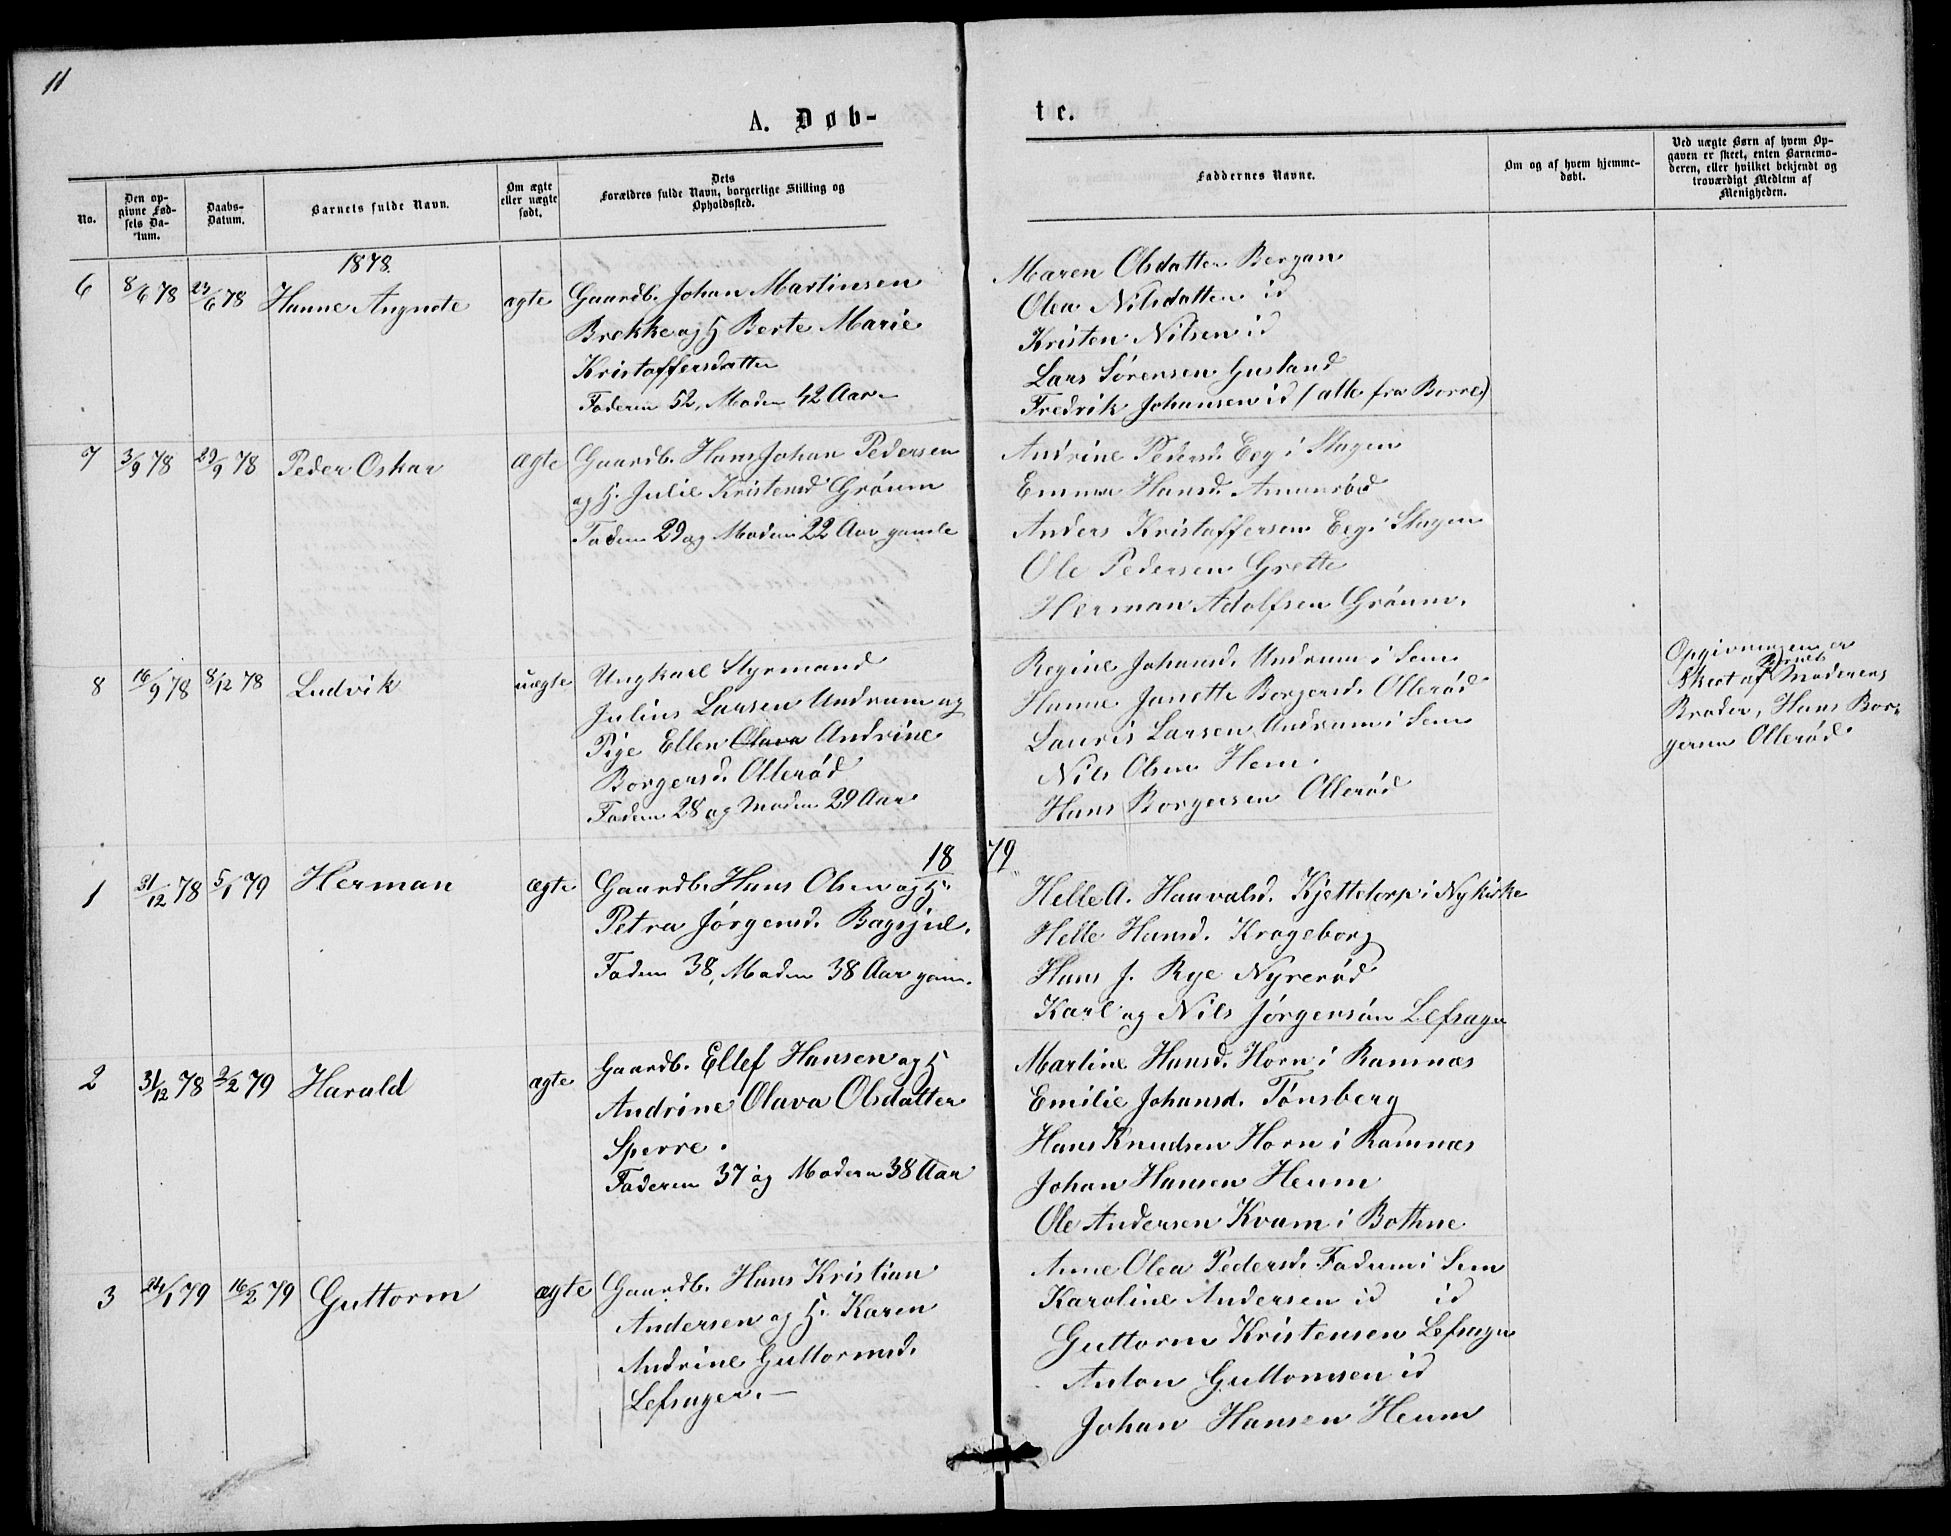 11
A. Døb-
te.
No.
Den op-
givne Fød-
sels Da-
tum.
Daabs-
Datum.
Barnets fulde Navn.
Om ægte
eller uægte
født.
Dets
Forældres fulde Navn, borgerlige Stilling og
Opholdssted.
Faddernes Navne.
Om og af hvem hjemme-
døbt.
Ved uægte Børn af hvem Op-
gaven er skeet, enten Barnemo-
deren, eller hvilket bekjendt og
troværdigt Medlem af
Menigheden.
1878.
6 8/6 78 23/6 78 Hanne Augnote ægte
Gaardb. Johan Martinsen
Brekke og H Berte Marie
Kristoffersdatter
Faderen 52, Moden 42 Aar
Maren Olsdatter Bergan
Olea Nilsdatter id
Kristen Nilsen id
Lars Sørensen Gusland
Fredrik Johansen id (alle fra Borre)
7 3/9 78 29/9 78 Peder Oskar ægte
Gaardb. Hans Johan Pedersen
og H. Julie Kristensd Grøum
Fadern 29 og Modern 22 Aar gamle
Andrine Pedersd. Eeg i Slagen
Emma Hansd. Amunrød
Anders Kristoffersen Eeg i Slagen
Ole Pedersen Grette
Herman Adolfsen Grøum.
8 16/9 78 8/12 78 Ludvik uægte
Ungkarl Styrmand
Julius Larsen Undrum og
Pige Ellen Olava Andrine
Borgersd. Ollerød
Fadern 28 og Modern 29 Aar
Regine Johansd. Undrum i Sem
Hanne Janette Borgersd. Ollerød
Lauris Larsen Undrum i Sem
Nils Olsen Hem.
Hans Borgersen Ollerød
Opgivningen er
skeet af Barnets Moderens
Broder, Hans Bor-
gersen Ollerød.
1879
1 31/12 78 5/1 79 Herman ægte
Gaardb. Hans Olsen og H.
Petra Jørgensd. Bagsjul.
Fadern 38, Modern 38 Aar gam.
Helle A. Haavalsd. Kjettetorp i Nykirke
Helle Hansd. Krageborg
Hans J. Rye Nyrerød
Karl og Nils Jørgensøn Lefsager
2 31/12 78 2/2 79 Harald ægte
Gaardb. Ellef Hansen og H
Andrine Olava Olsdatter
Sperre.
Faderen 37 og Modern 38 Aar
Martine Hansd. Horn i Ramnæs
Emilie Johansd. Tønsberg
Hans Knudsen Horn i Ramnæs
Johan Hansen Heum
Ole Andersen Kvam i Bothne
3 24/1 79 16/2 79 Guttorm ægte
Gaardb. Hans Kristian
Andersen og H. Karen
Andrine Guttormsd.
Lefsager.
Anne Olea Pedersd. Fadum i Sem
Karoline Andersen id id
Guttorm Kristensen Lefsager
Anton Guttormsen id
Johan Hansen Heum